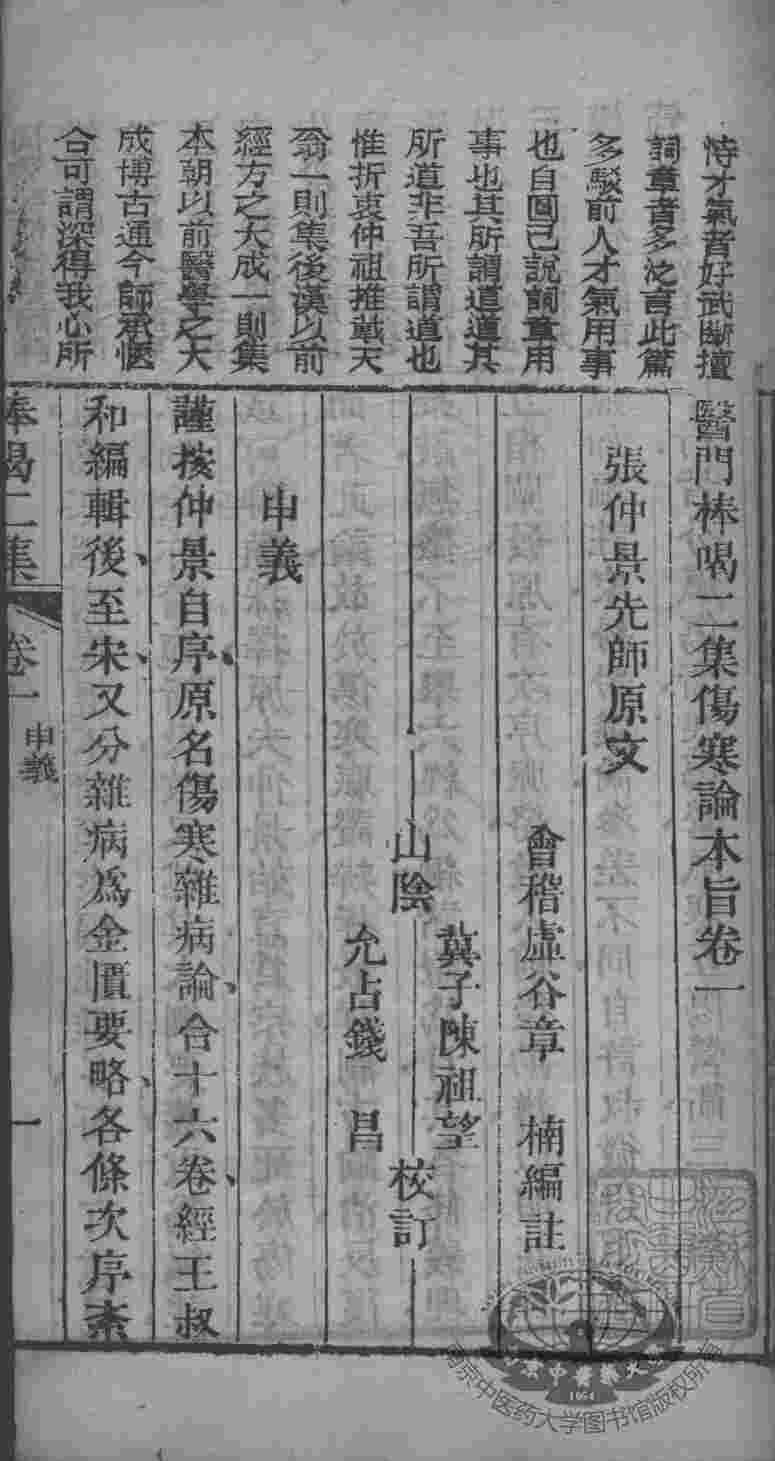 恃才氣者好武斷擅
詞章者多泛言此篇
多駁前人才氣用事
也自圓己說詞章用
事也其所謂道道其
所道非吾所謂道也
惟折衷仲祖推戴天
翁一則集後漢以前
經方之大成一則集
本朝以前醫學之大
成博古通今師承愜
合可謂深得我心所
醫門棒喝二集傷寒論本旨卷一
張仲景先師原文
會稽虛谷章 楠編註
蓂子陳祖望
山陰 校訂
允占錢 昌
申義
謹按仲景自序原名傷寒雜病論合十六卷經王叔
和編輯後至宋又分雜病爲金匱要略各條次序紊
棒喝二集 卷一 申義 一
南京中医药大学图书馆版权所有
1954